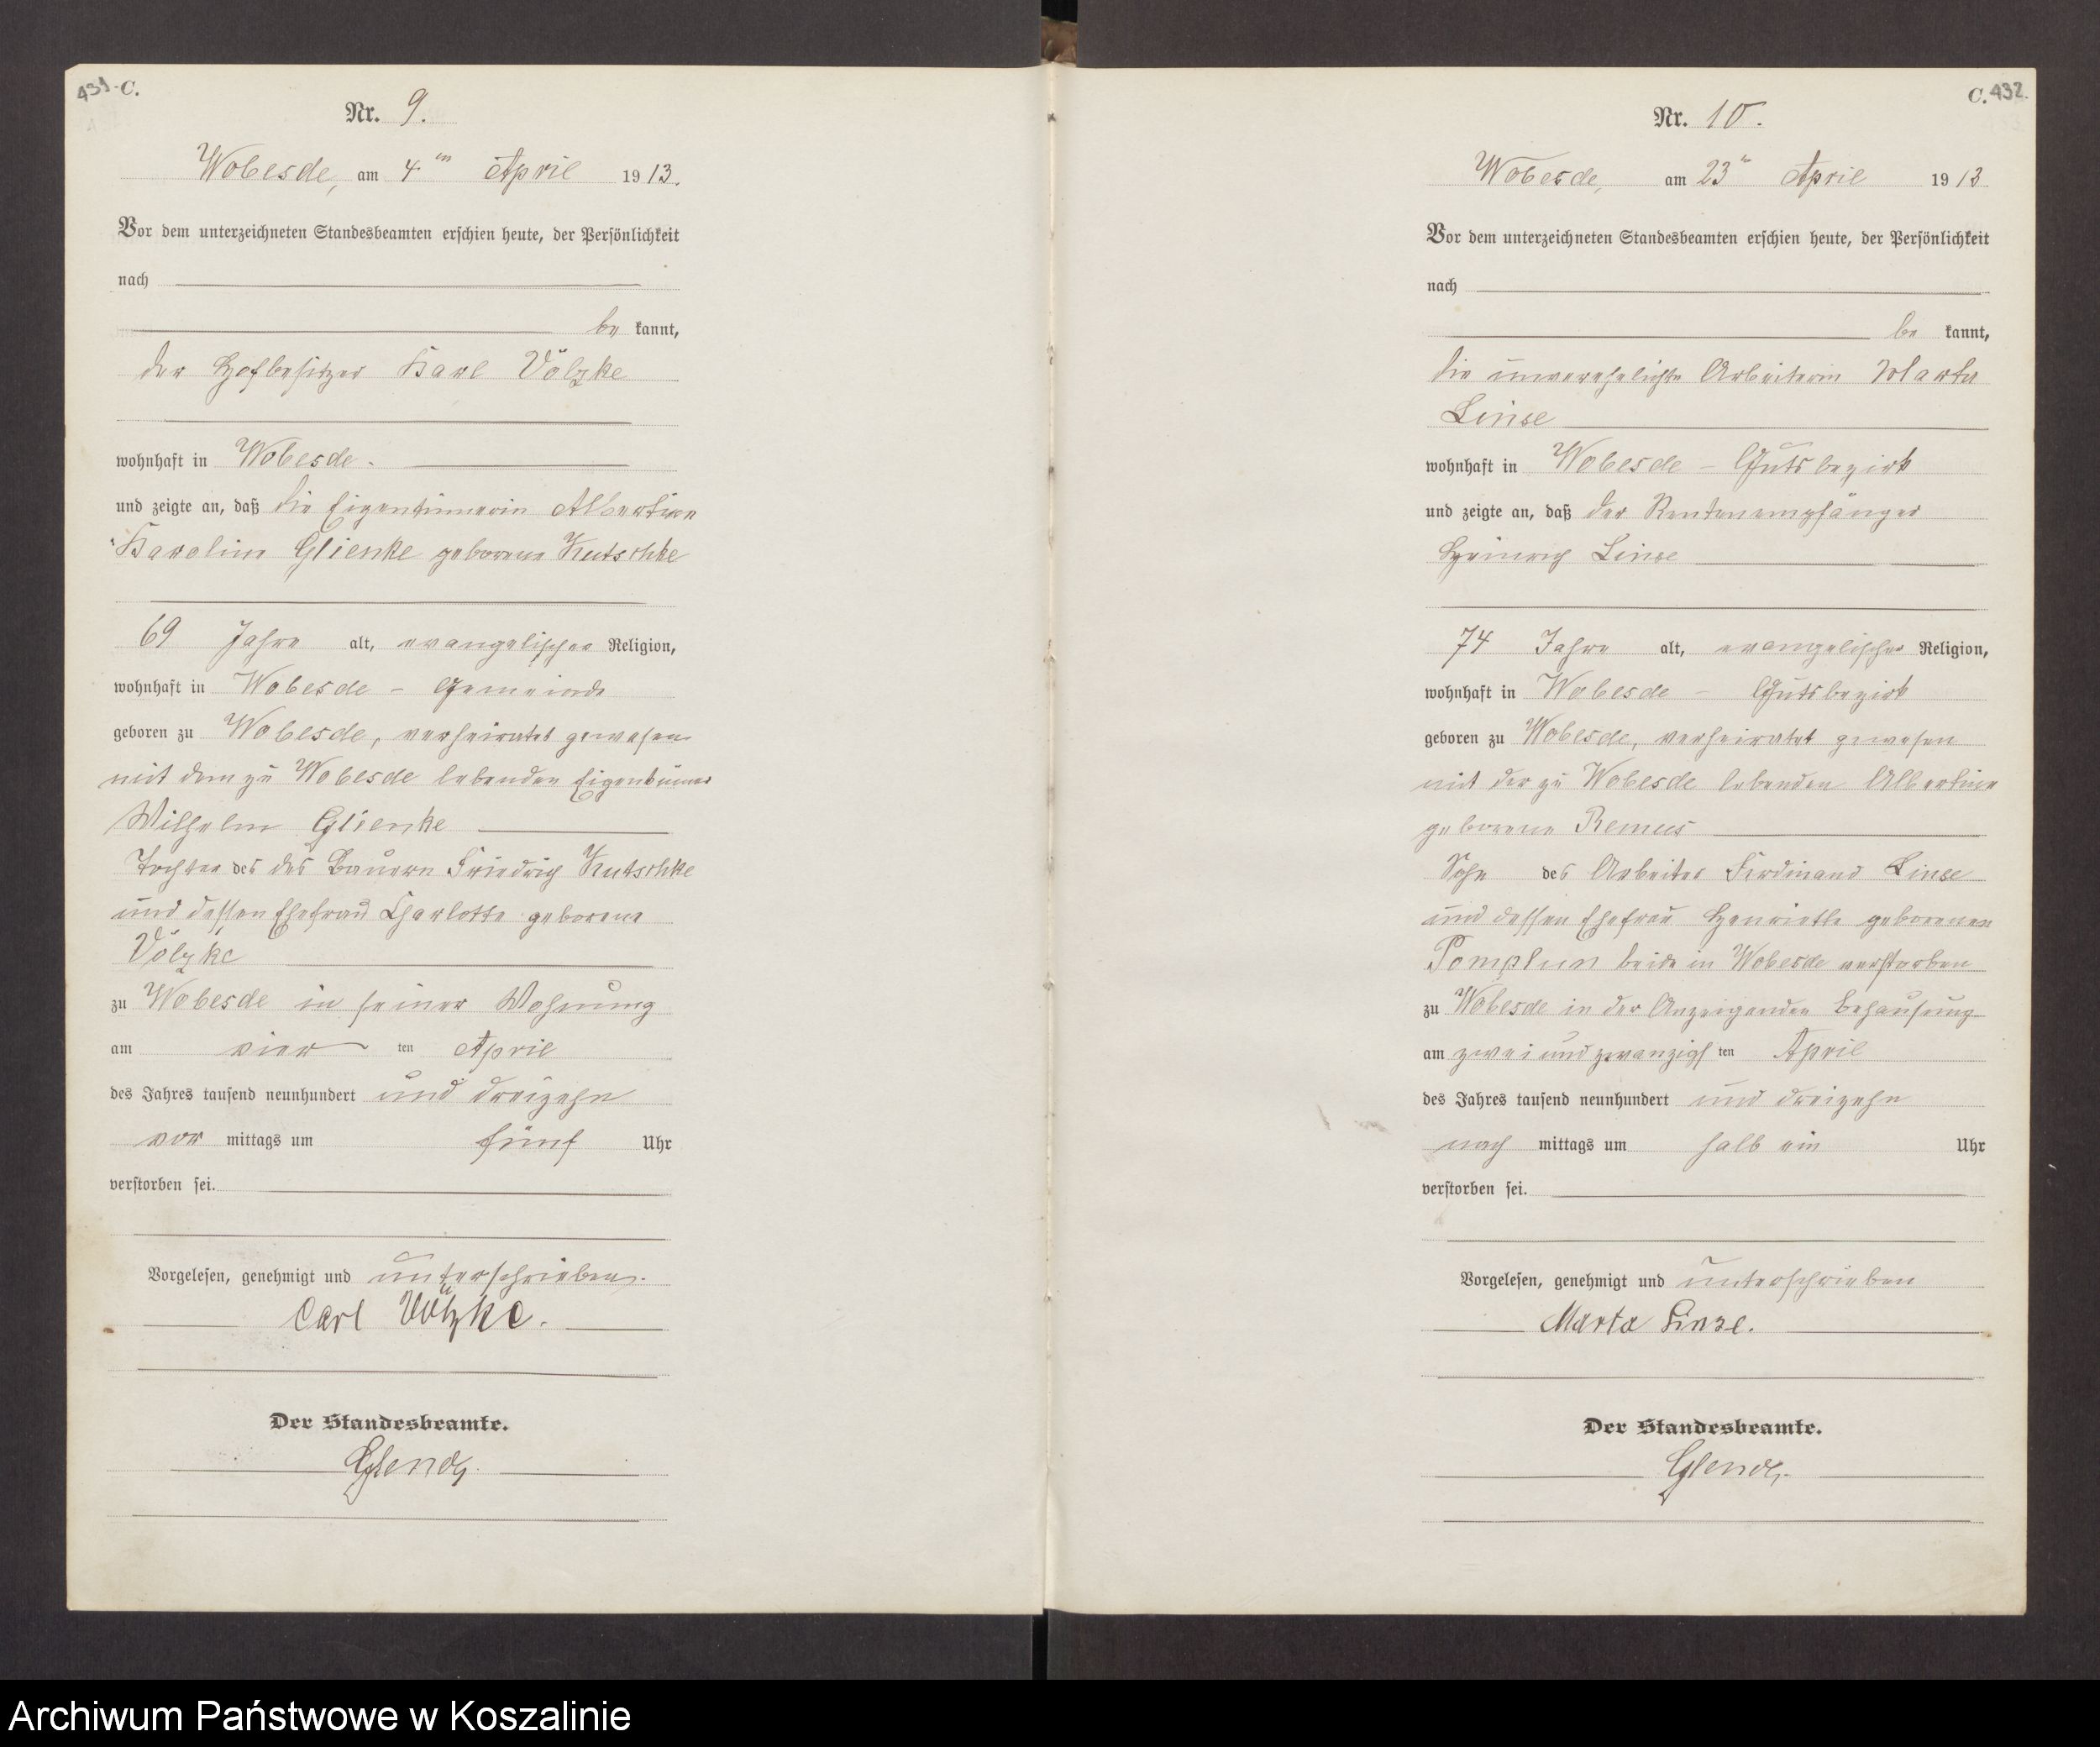 431. C.
Nr. 9.
Wobesde, am 4ten April 1913.
Vor dem unterzeichneten Standesbeamten erschien heute, der Persönlichkeit
nach
be kannt,
der Hofbesitzer Karl Völzke
wohnhaft in Wobesde.
und zeigte an, daß die Eigentümerin Albertine
Karoline Glienke geborene Kutschke
69 Jahre alt, evangelischer Religion,
wohnhaft in Wobesde - Gemeinde
geboren zu Wobesde, verheiratet gewesen
mit dem zu Wobesde lebenden Eigentümer
Wilhelm Glienke
Tochter des des Bauern Friedrich Kutschke
und dessen Ehefrau Charlotte geborene
Völzke
zu Wobesde in seiner Wohnung
am vier ten April
des Jahres tausend neunhundert und dreizehn
vor mittags um fünf Uhr
verstorben sei.
Vorgelesen, genehmigt und unterschrieben.
Carl Völzke.
Der Standesbeamte.
C. 432.
Nr. 10.
Wobesde, am 23n April 1913
Vor dem unterzeichneten Standesbeamten erschien heute, der Persönlichkeit
nach
be kannt,
die unverehelichte Arbeiterin Marta
Linse
wohnhaft in Wobesde - Gutsbezirk
und zeigte an, daß der Rentenempfänger
Heinrich Linse
74 Jahre alt, evangelischer Religion,
wohnhaft in Wobesde - Gutsbezirk
geboren zu Wobesde, verheiratet gewesen
mit der zu Wobesde lebenden Albertine
geborene Remus
Sohn des Arbeiter Ferdinand Linse
und dessen Ehefrau Henriette geborenen
Pomplun beide in Wobesde verstorben
zu Wobesde in der Anzeigenden Behausung
am zwei und zwanzigs ten April
des Jahres tausend neunhundert und dreizehn
nach mittags um halb ein Uhr
verstorben sei.
Vorgelesen, genehmigt und unterschrieben
Marta Linse.
Der Standesbeamte.
Archiwum Państwowe w Koszalinie